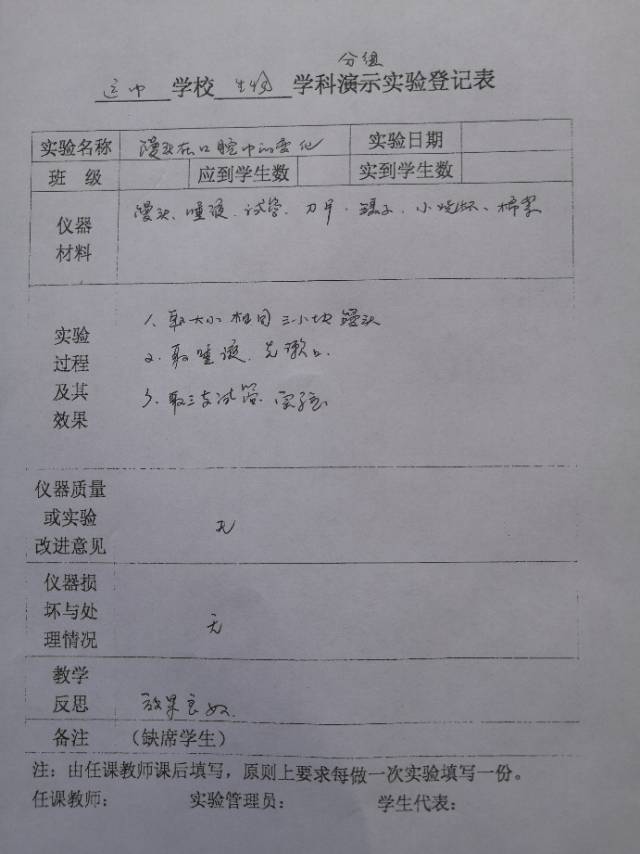 分组
运中学校生物学科演示实验登记表
实验名称 馒头在口腔中的变化 实验日期
班 级 应到学生数 实到学生数
仪器 馒头、唾液、试管、刀片、镊子、小烧杯、棉絮
材料
实验 1、取大小相同三小块馒头
过程 2、取唾液、先漱口
及其 3、取三支试管、实验
效果
仪器质量
或实验 无
改进意见
仪器损
坏与处 无
理情况
教学
反思 效果良好
备注 （缺席学生）
注：由任课教师课后填写，原则上要求每做一次实验填写一份。
任课教师： 实验管理员： 学生代表：